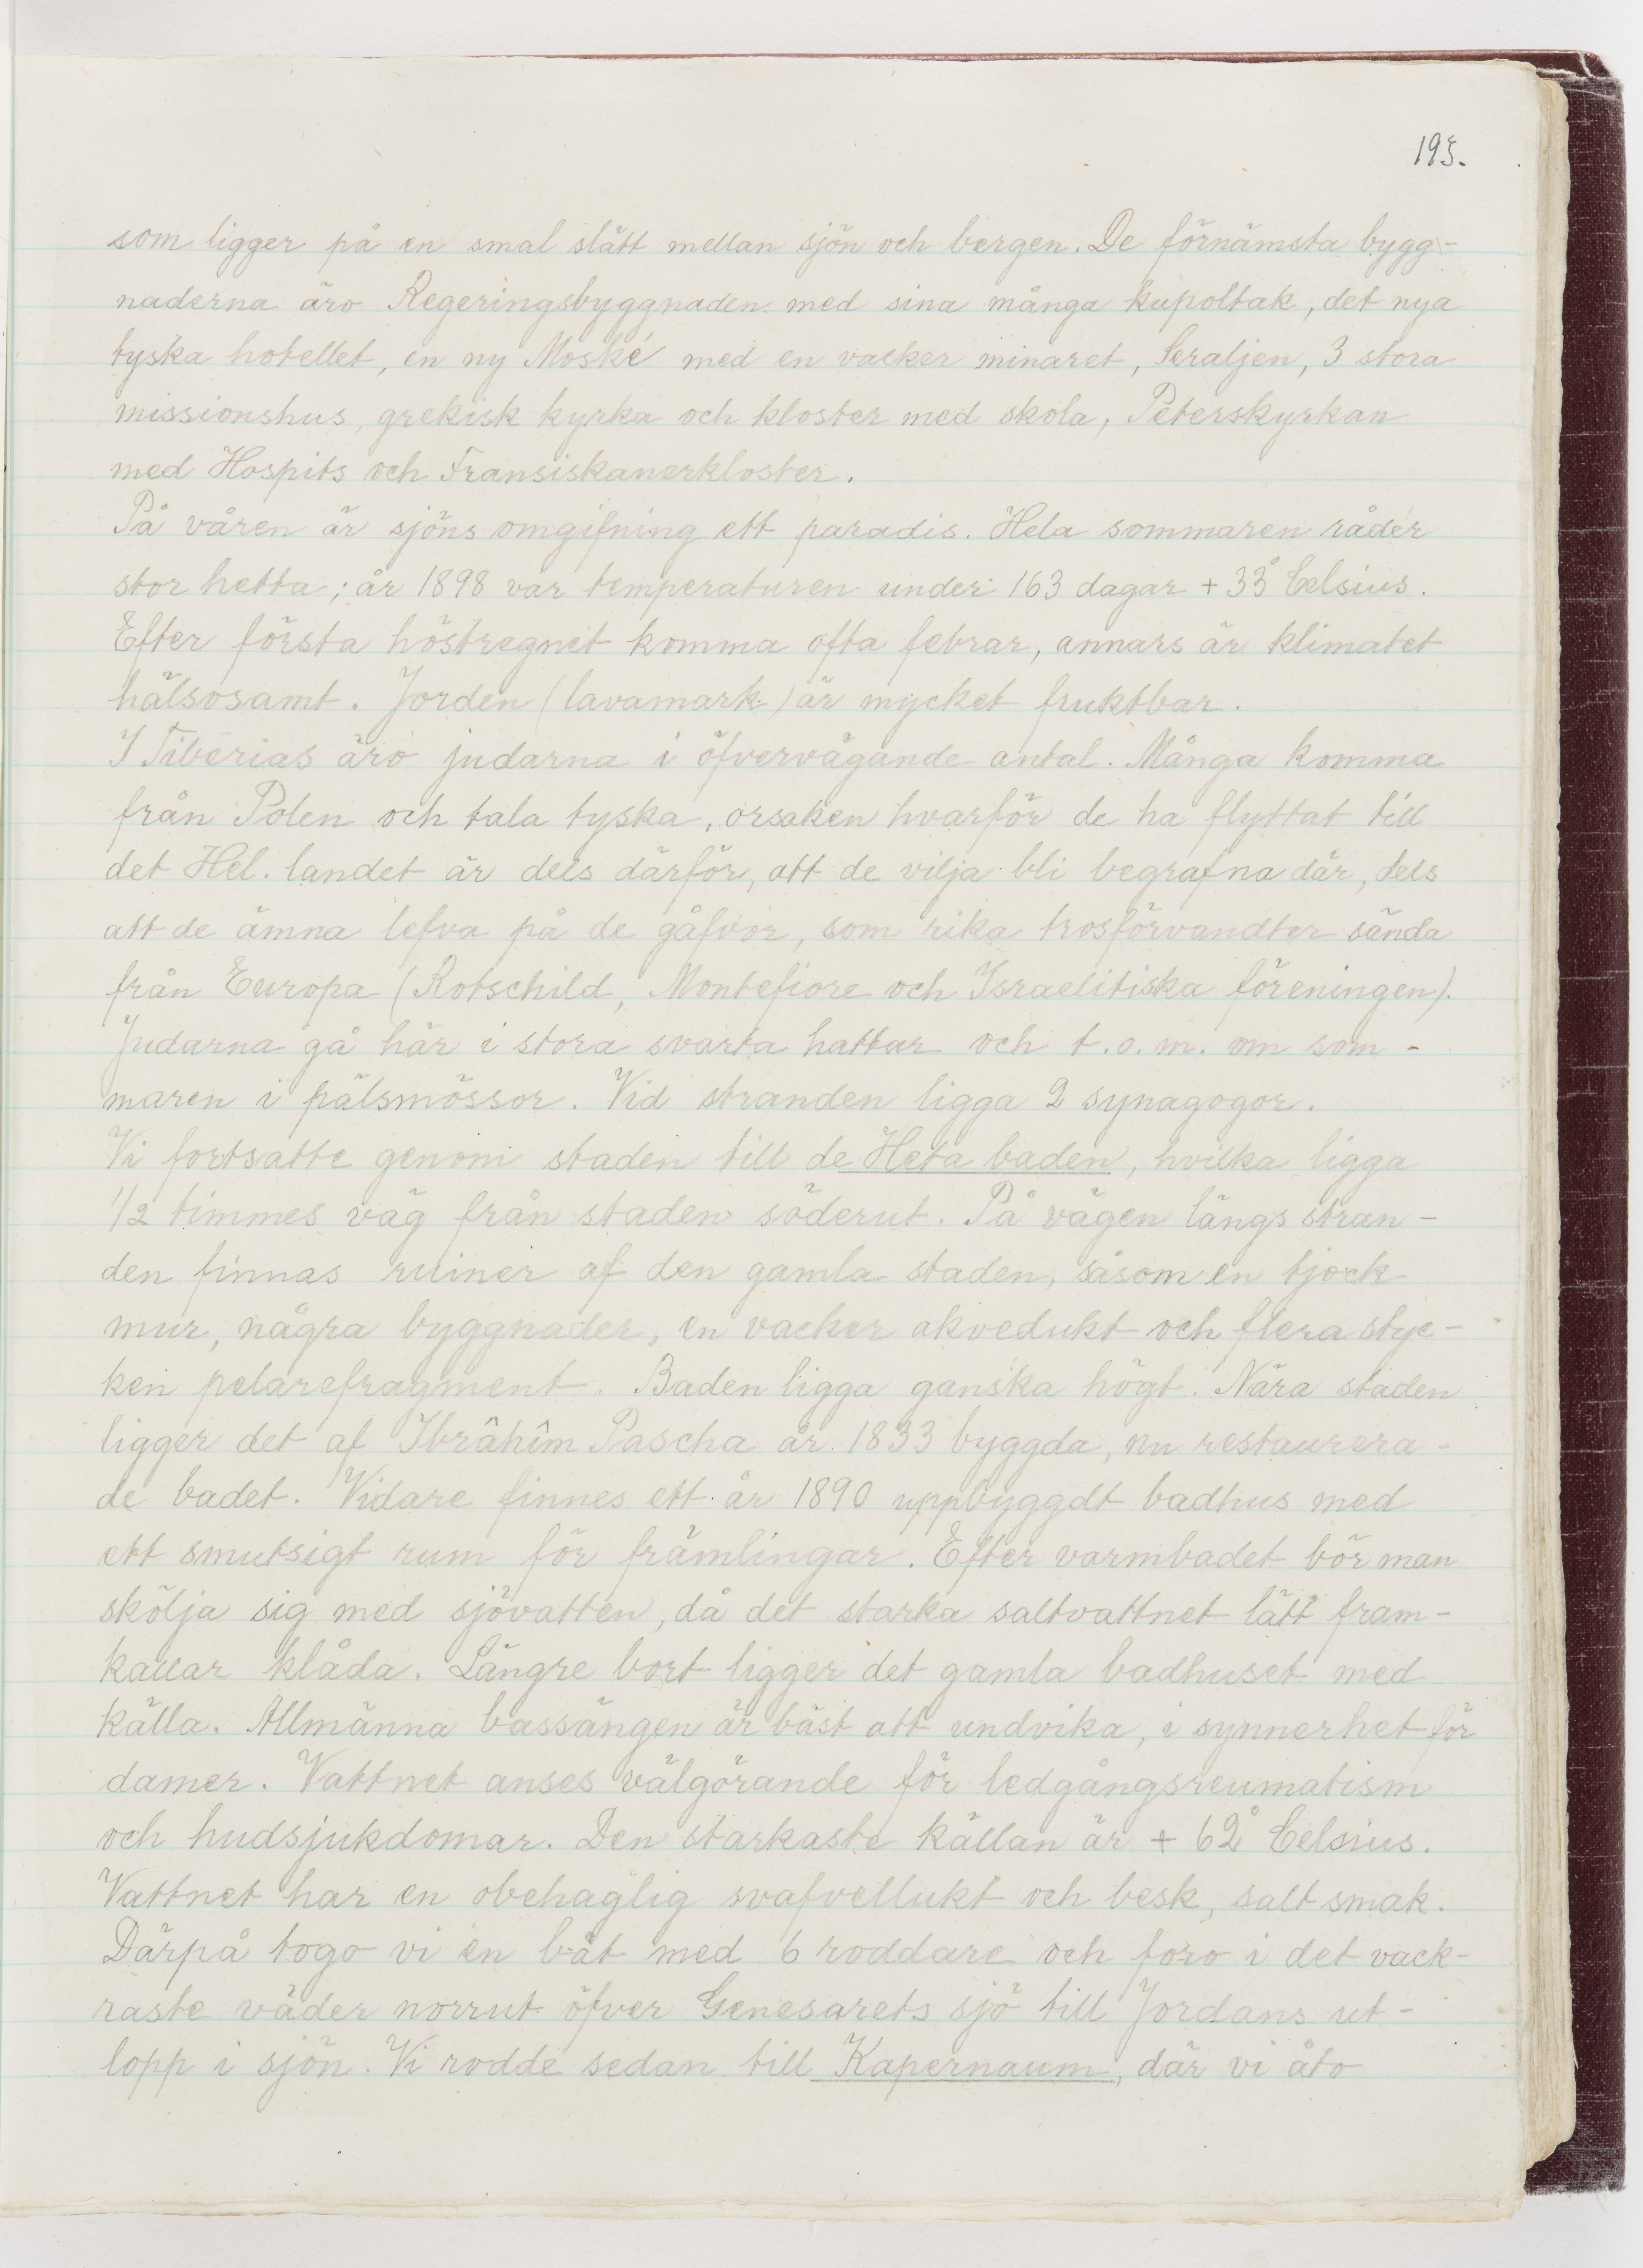 195.
som ligger på en smal slätt mellan sjön och bergen. De förnämsta bygg-
naderna äro Regeringsbyggnaden med sina många kupoltak, det nya
tyska hotellet, en ny Moské med en vacker minaret, Seraljen, 3 stora
missionshus, grekisk kyrka och kloster med skola, Peterskyrkan
med Hospits och Fransiskanerkloster.
På våren är sjöns omgifning ett paradis. Hela sommaren råder
stor hetta; år 1898 var temperaturen under 163 dagar + 33° Celsius.
Efter första höstregnet komma ofta febrar, annars är klimatet
hälsosamt. Jorden (lavamark) är mycket fruktbar.
I Tiberias äro judarna i öfvervägande antal. Många komma
från Polen och tala tyska, orsaken hvarför de ha flyttat till
det Hel. landet är dels därför, att de vilja bli begrafna där, dels
att de ämna lefva på de gåfvor, som rika trosförvandter sända
från Europa (Rotschild, Montefiore och Israelitiska föreningen).
Judarna gå här i stora svarta hattar och t.o.m. om som-
maren i pälsmössor. Vid stranden ligga 2 synagogor.
Vi fortsatte genom staden till de Heta baden, hvilka ligga
1/2 timmes väg från staden söderut. På vägen längs stran-
den finnas ruiner af den gamla staden, såsom en tjock
mur, några byggnader, en vacker akvedukt och flera styc-
ken pelarefragment. Baden ligga ganska högt. Nära staden
ligger det af Ibrâhîm Pascha år 1833 byggda, nu restaurera-
de badet. Vidare finnes ett år 1890 uppbyggdt badhus med
ett smutsigt rum för främlingar. Efter varmbadet bör man
skölja sig med sjövatten, då det starka saltvattnet lätt fram-
kallar klåda. Längre bort ligger det gamla badhuset med
källa. Allmänna bassängen är bäst att undvika, i synnerhet för
damer. Vattnet anses välgörande för ledgångsreumatism
och hudsjukdomar. Den starkaste källan är + 62° Celsius.
Vattnet har en obehaglig svafvellukt och besk, salt smak.
Därpå togo vi en båt med 6 roddare och foro i det vack-
raste väder norrut öfver Genesarets sjö till Jordans ut-
lopp i sjön. Vi rodde sedan till Kapernaum, där vi åto